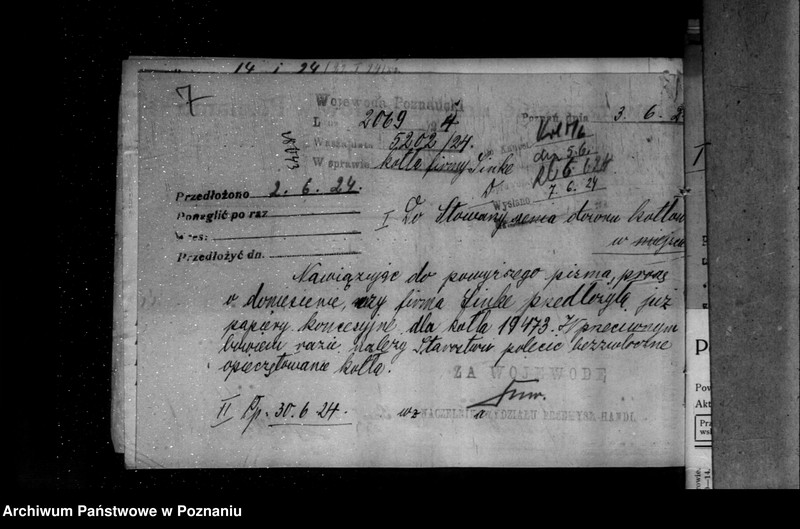 14 I 24
7
Wojewoda Poznański
L. 2069 4 Poznań, dnia 3. 6. 2
Wasza data 5202/24.
W sprawie kotła firmy Sinke
Kol 7/6
dn 5.6.
6. 6 24
Wysłano 7. 6. 24
Przedłożono 2. 6. 24.
Ponaglić po raz
Przedłożyć dn.
I Do Stowarzyszenia dozoru kotłów
w miejscu
Nawiązując do powyższego pisma, proszę
o doniesienie, czy firma Sinke przedłożyła już
papiery koncesyjne dla kotła 19473. W przeciwnym
bowiem razie należy Starostwu polecić bezzwłoczne
opieczętowanie kotła.
ZA WOJEWODĘ
II Pp. 30. 6 24. wz
NACZELNIK WYDZIAŁU PRZEMYSŁ.-HANDL.
P
Pow
Akt
Archiwum Państwowe w Poznaniu